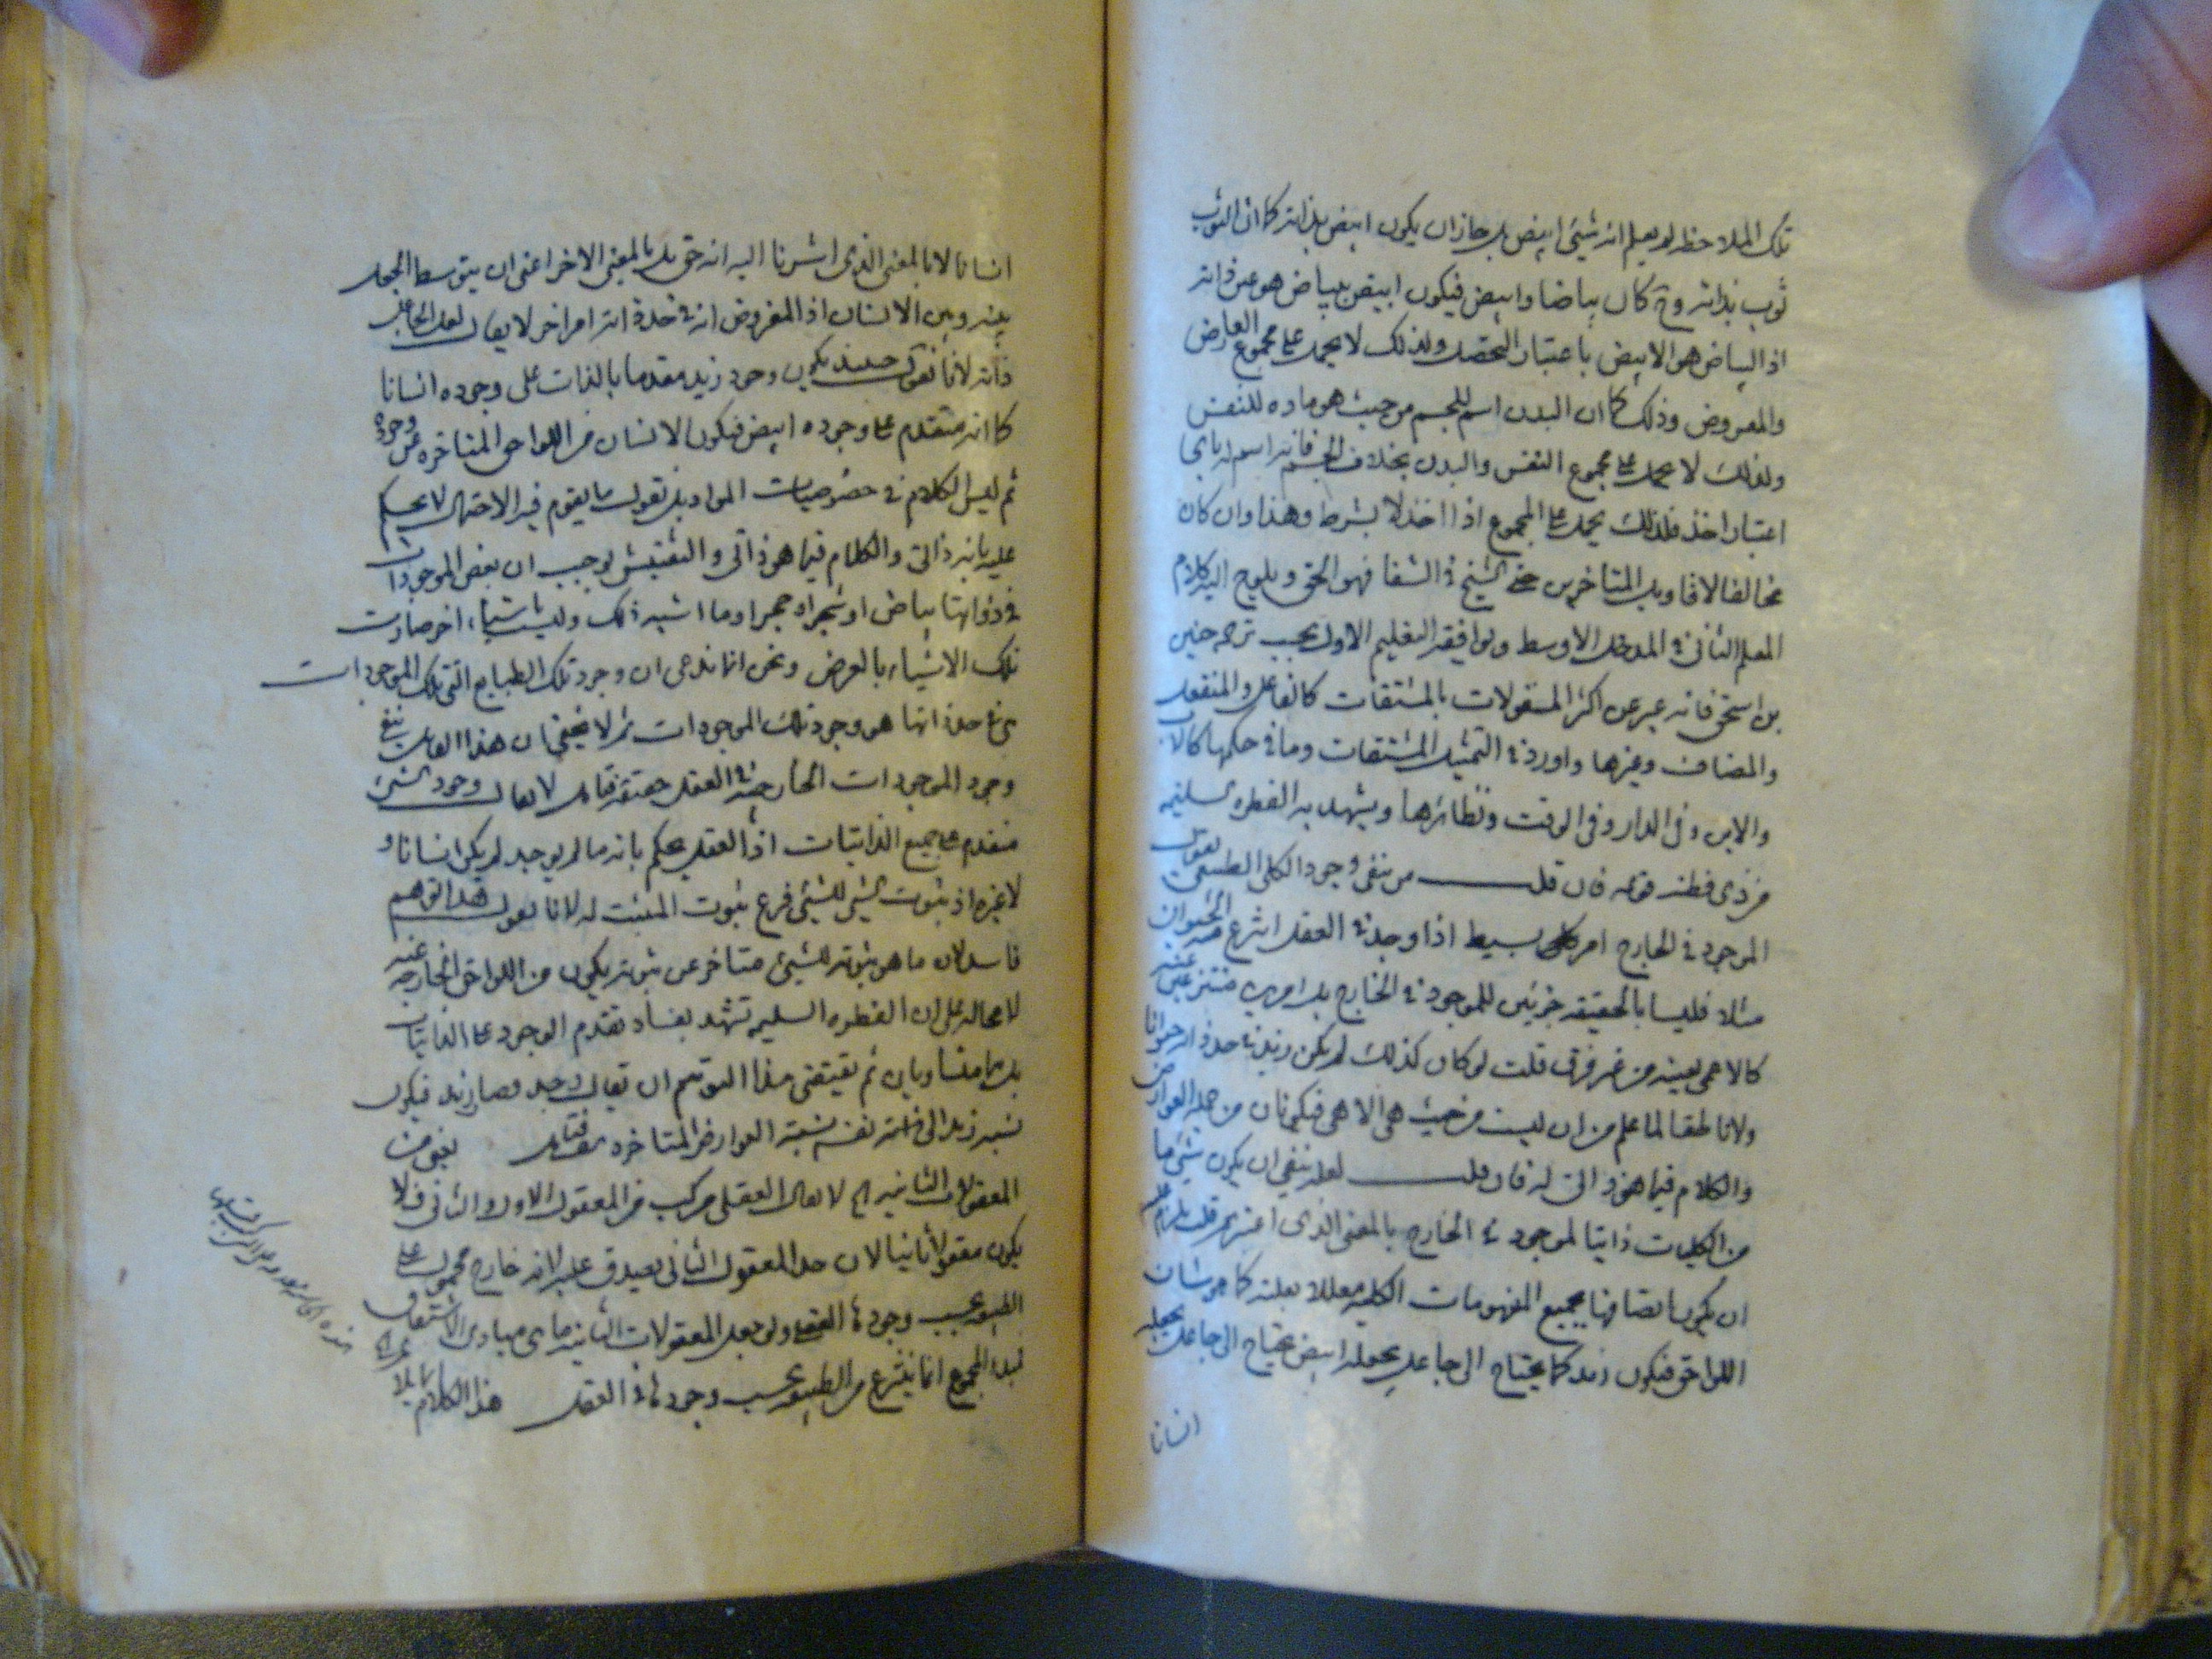 تلك الملاحظه لم يعلم انه شيئ ابيض بل جاز ان يكون ابيض بذاته كما ان الثوب
ثوب بذاته وح كان بياضا وابيض فيكون ابيض ببياض هو عين ذاته
اذ البياض هو الابيض باعتبار التحصل ولذلك لا يحمل على مجموع العارض
والمعروض وذلك كما ان البدن اسم للجسم من حيث هو ماده للنفس
ولذلك لا يحمل على مجموع النفس والبدن بخلاف الجسم فانه اسم له باى
اعتبار اخذ فلذلك يحمل على المجموع اذا اخذ لا بشرط وهذا وان كان
مخالفا لاقاويل المتاخرين عن الشيخ فى الشفا فهو الحق ويلوح اليه كلام
المعلم الثانى فى المدخل الاوسط ويوافقه التعليم الاول بحسب ترجمه حنين
بن اسحق فانه عبر عن اكثر المقولات بالمشتقات كالفاعل والمنفعل
والمضاف وغيرها واورد فى التمثيل المشتقات وما فى حكمها كالاب
والابن وفى الدار وفى الوقت ونظائرها ويشهد به الفطره السليمه
من ذى فطنه قويمه فان قلت من ينفى وجود الكلى الطبيعى يقول
الموجود فى الخارج امر بسيط اذا وجد فى العقل انتزع منه الحيوان
مثلا فليسا بالحقيقه جزئين للموجود فى الخارج بل امرين منتزعين عنه
كالاعمى بعينه من غير فرق قلت لو كان كذلك لم يكن زيد فى حد ذاته حيوانا
ولا ناطقا لما علم من ان ليست من حيث هى الا هى فيكونان من جمله العوارض
والكلام فيما هو ذاتى له فان قلت لعله ينفى ان يكون شيئ ما
من الكليات ذاتيا لموجود فى الخارج بالمعنى الذى قلت يلزم
ان يكون اتصافها بجميع المفهومات الكليه معللا بعله كما هو شان
اللواحق فيكون زيد كما يحتاج الى جاعل يجعله ابيض يحتاج الى جاعل يجعله
انسانا
انسانا لا بالمعنى الذى اشرنا اليه انه حق بل بالمعنى الاخر اعنى ان يتوسط الجعل
بينه وبين الانسان اذ المفروض انه فى حد ذاته امر اخر لا يقال لعل الجاعل
ذاته لانا نقول حينئذ يكون وجود زيد مقدما بالذات على وجوده انسانا
كما انه متقدم على وجوده ابيض فيكون الانسان من اللواحق المتاخره عن وجوده
ثم ليس الكلام فى خصوصيات المواد بل نقول ما يقوم فيه الاحتمال لا يحكم
عليه بانه ذاتى والكلام فيما هو ذاتى والتفتيش يوجب ان بعض الموجودات
فى ذواتها بياض او شجر او حجر او ما اشبه ذلك وليست اشياء اخر صارت
تلك الاشياء بالعرض ونحن انما ندعى ان وجود تلك الطبايع التى تلك الموجودات
هى فى حد ذاتها هو وجود تلك الموجودات ثم لا يخفى ان هذا القايل ينفى
وجود الموجودات الخارجيه فى العقل حقيقه لا يقال وجود الشئ
متقدم على جميع الذاتيات اذ العقل يحكم بانه ما لم يوجد لم يكن انسانا و
لا غيره اذ ثبوت الشئ للشيئ فرع ثبوت المثبت له لانا نقول هذا توهم
فاسد لان ما هو ثبوته للشيئ متاخر عن ثبوته يكون من اللواحق الخارجه عنه
لا محاله على ان الفطره السليمه تشهد بفساد تقدم الوجود على الذاتيات
بل هما متساويان ثم يقتضى هذا التوهم ان يقال وجد فصار زيد فيكون
نسبه زيد الى ذاته نفسه نسبته العوارض المتاخره يفوقن
المعقولات الثانيه لا يقال العقلى مركب من المعقول الاول والثانى فلا
يكون معقولا ثانيا لان حد المعقول الثانى يصدق عليه لانه خارج محمول على
الطبيعه بحسب وجودها فى العقل ولو جعل المعقولات الثانيه مبادى الاشتقاق
فبدا المجموع انما ينتزع من الطبيعه بحسب وجودها فى العقل هذا الكلام